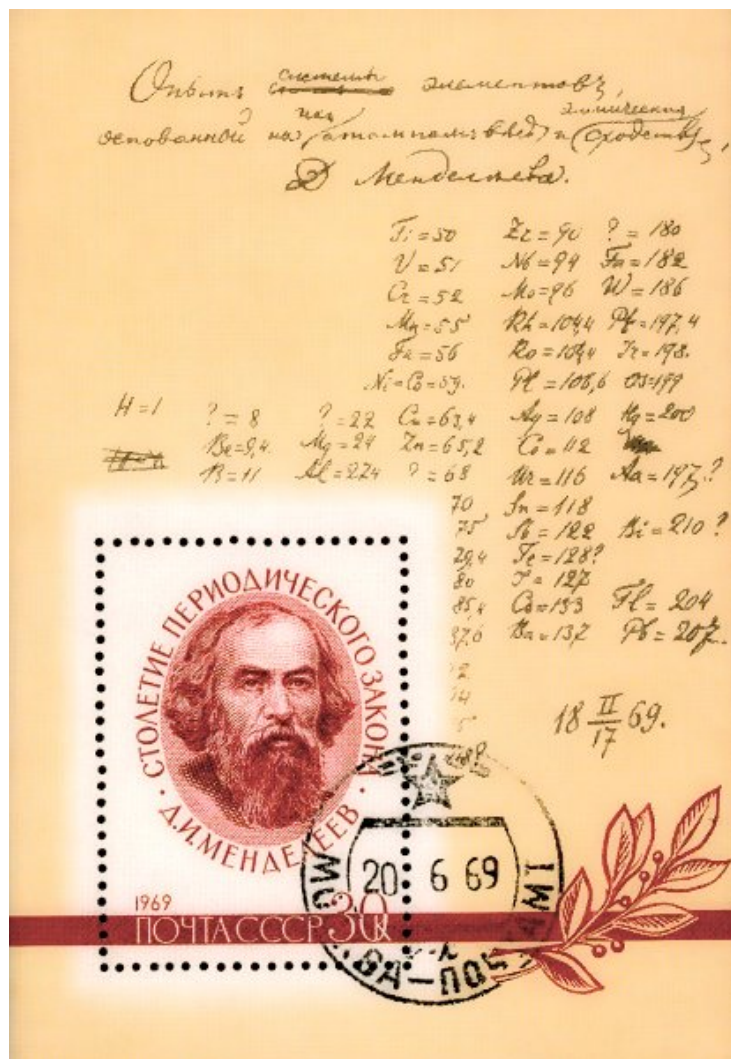 Опытъ системы элементовъ,
основанной на ихъ атомномъ вѣсѣ и химическомъ сходствѣ,
Д Менделѣева.
Ti=50 Zr=90 ?=180
V=51 Nb=94 Ta=182
Cr=52 Mo=96 W=186
Mn=55 Rh=104,4 Pt=197,4
Fe=56 Ro=104,4 Ir=198.
Ni=Co=59. Pl=106,6 Os=199
H=1 ?=8 ?=22 Cu=63,4 Ag=108 Hg=200
Be=9,4 Mg=24 Zn=65,2 Cd=112
B=11 Al=27,4 ?=68 Ur=116 Au=197?
70 Sn=118
75 Sb=122 Bi=210?
79,4 Te=128?
80 J=127
85,4 Cs=133 Tl=204
87,6 Ba=137 Pb=207.
18 II/17 69.
СТОЛЕТИЕ ПЕРИОДИЧЕСКОГО ЗАКОНА
· Д.И.МЕНДЕЛЕЕВ ·
1969
ПОЧТА СССР 30К
20 6 69